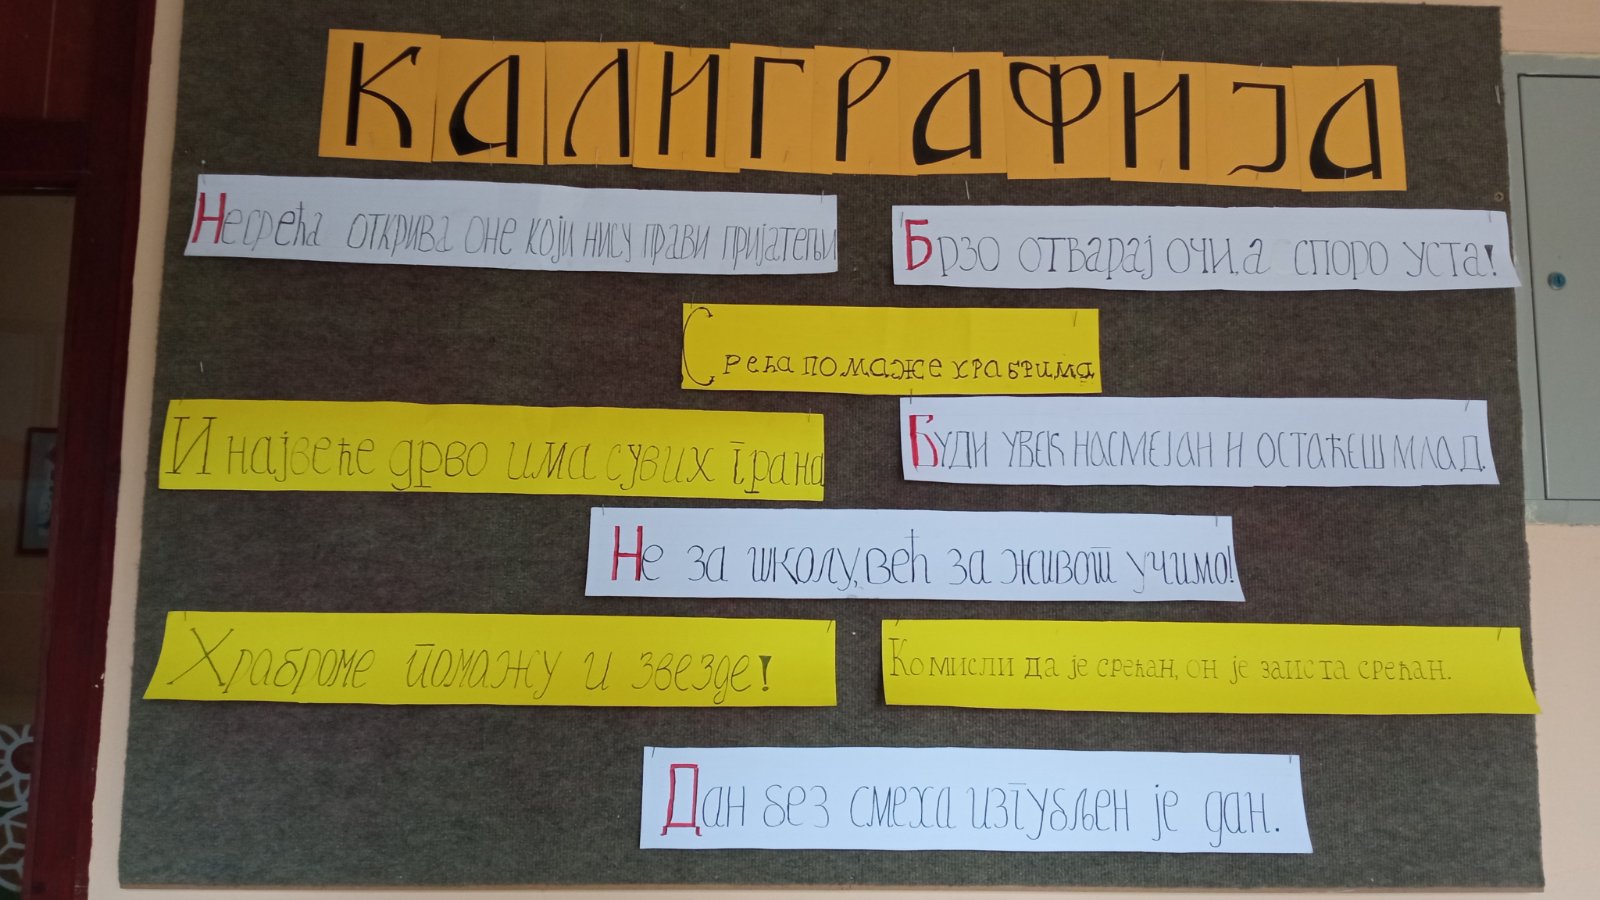 КАЛИГРАФИЈА
Несрећа открива оне који нису прави пријатељи
Брзо отварај очи, а споро уста!
Срећа помаже храбрима
И највеће дрво има сувих грана
Буди увек насмејан и остаћеш млад.
Не за школу, већ за живот учимо!
Храброме помажу и звезде!
Ко мисли да је срећан, он је заиста срећан.
Дан без смеха изгубљен је дан.